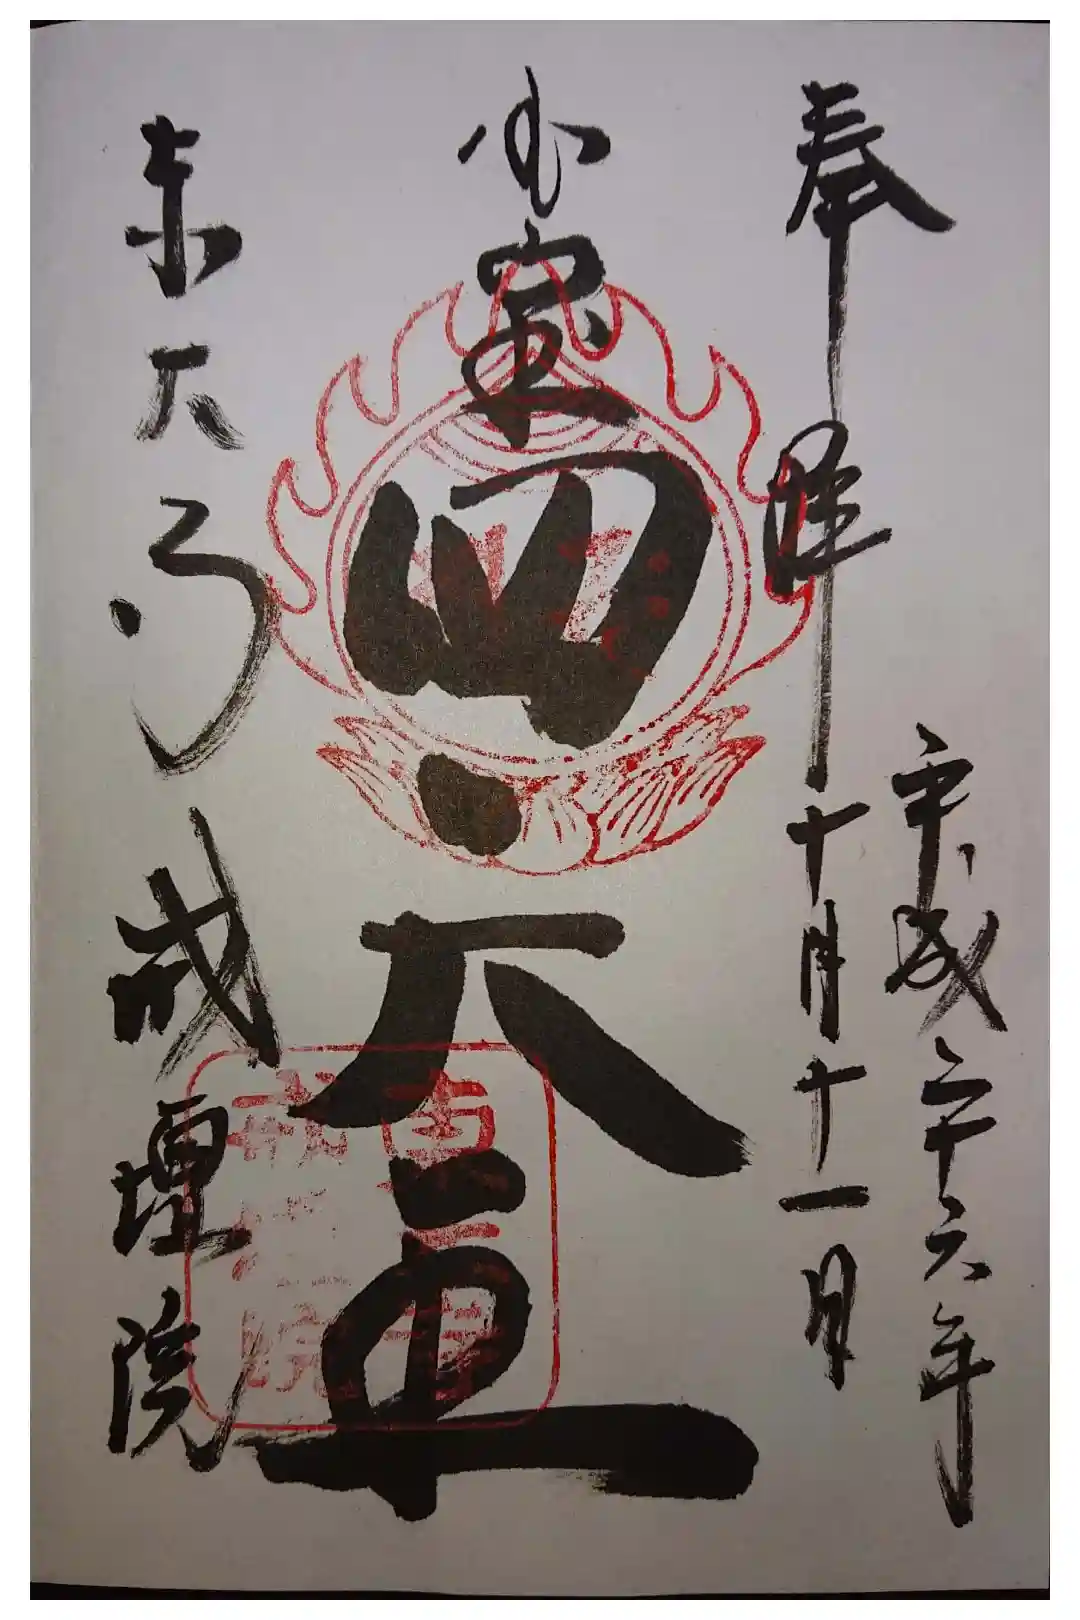 奉拝
平成二十六年
十月十一日
国宝
四天王
東大寺戒壇院
東大寺
戒壇院